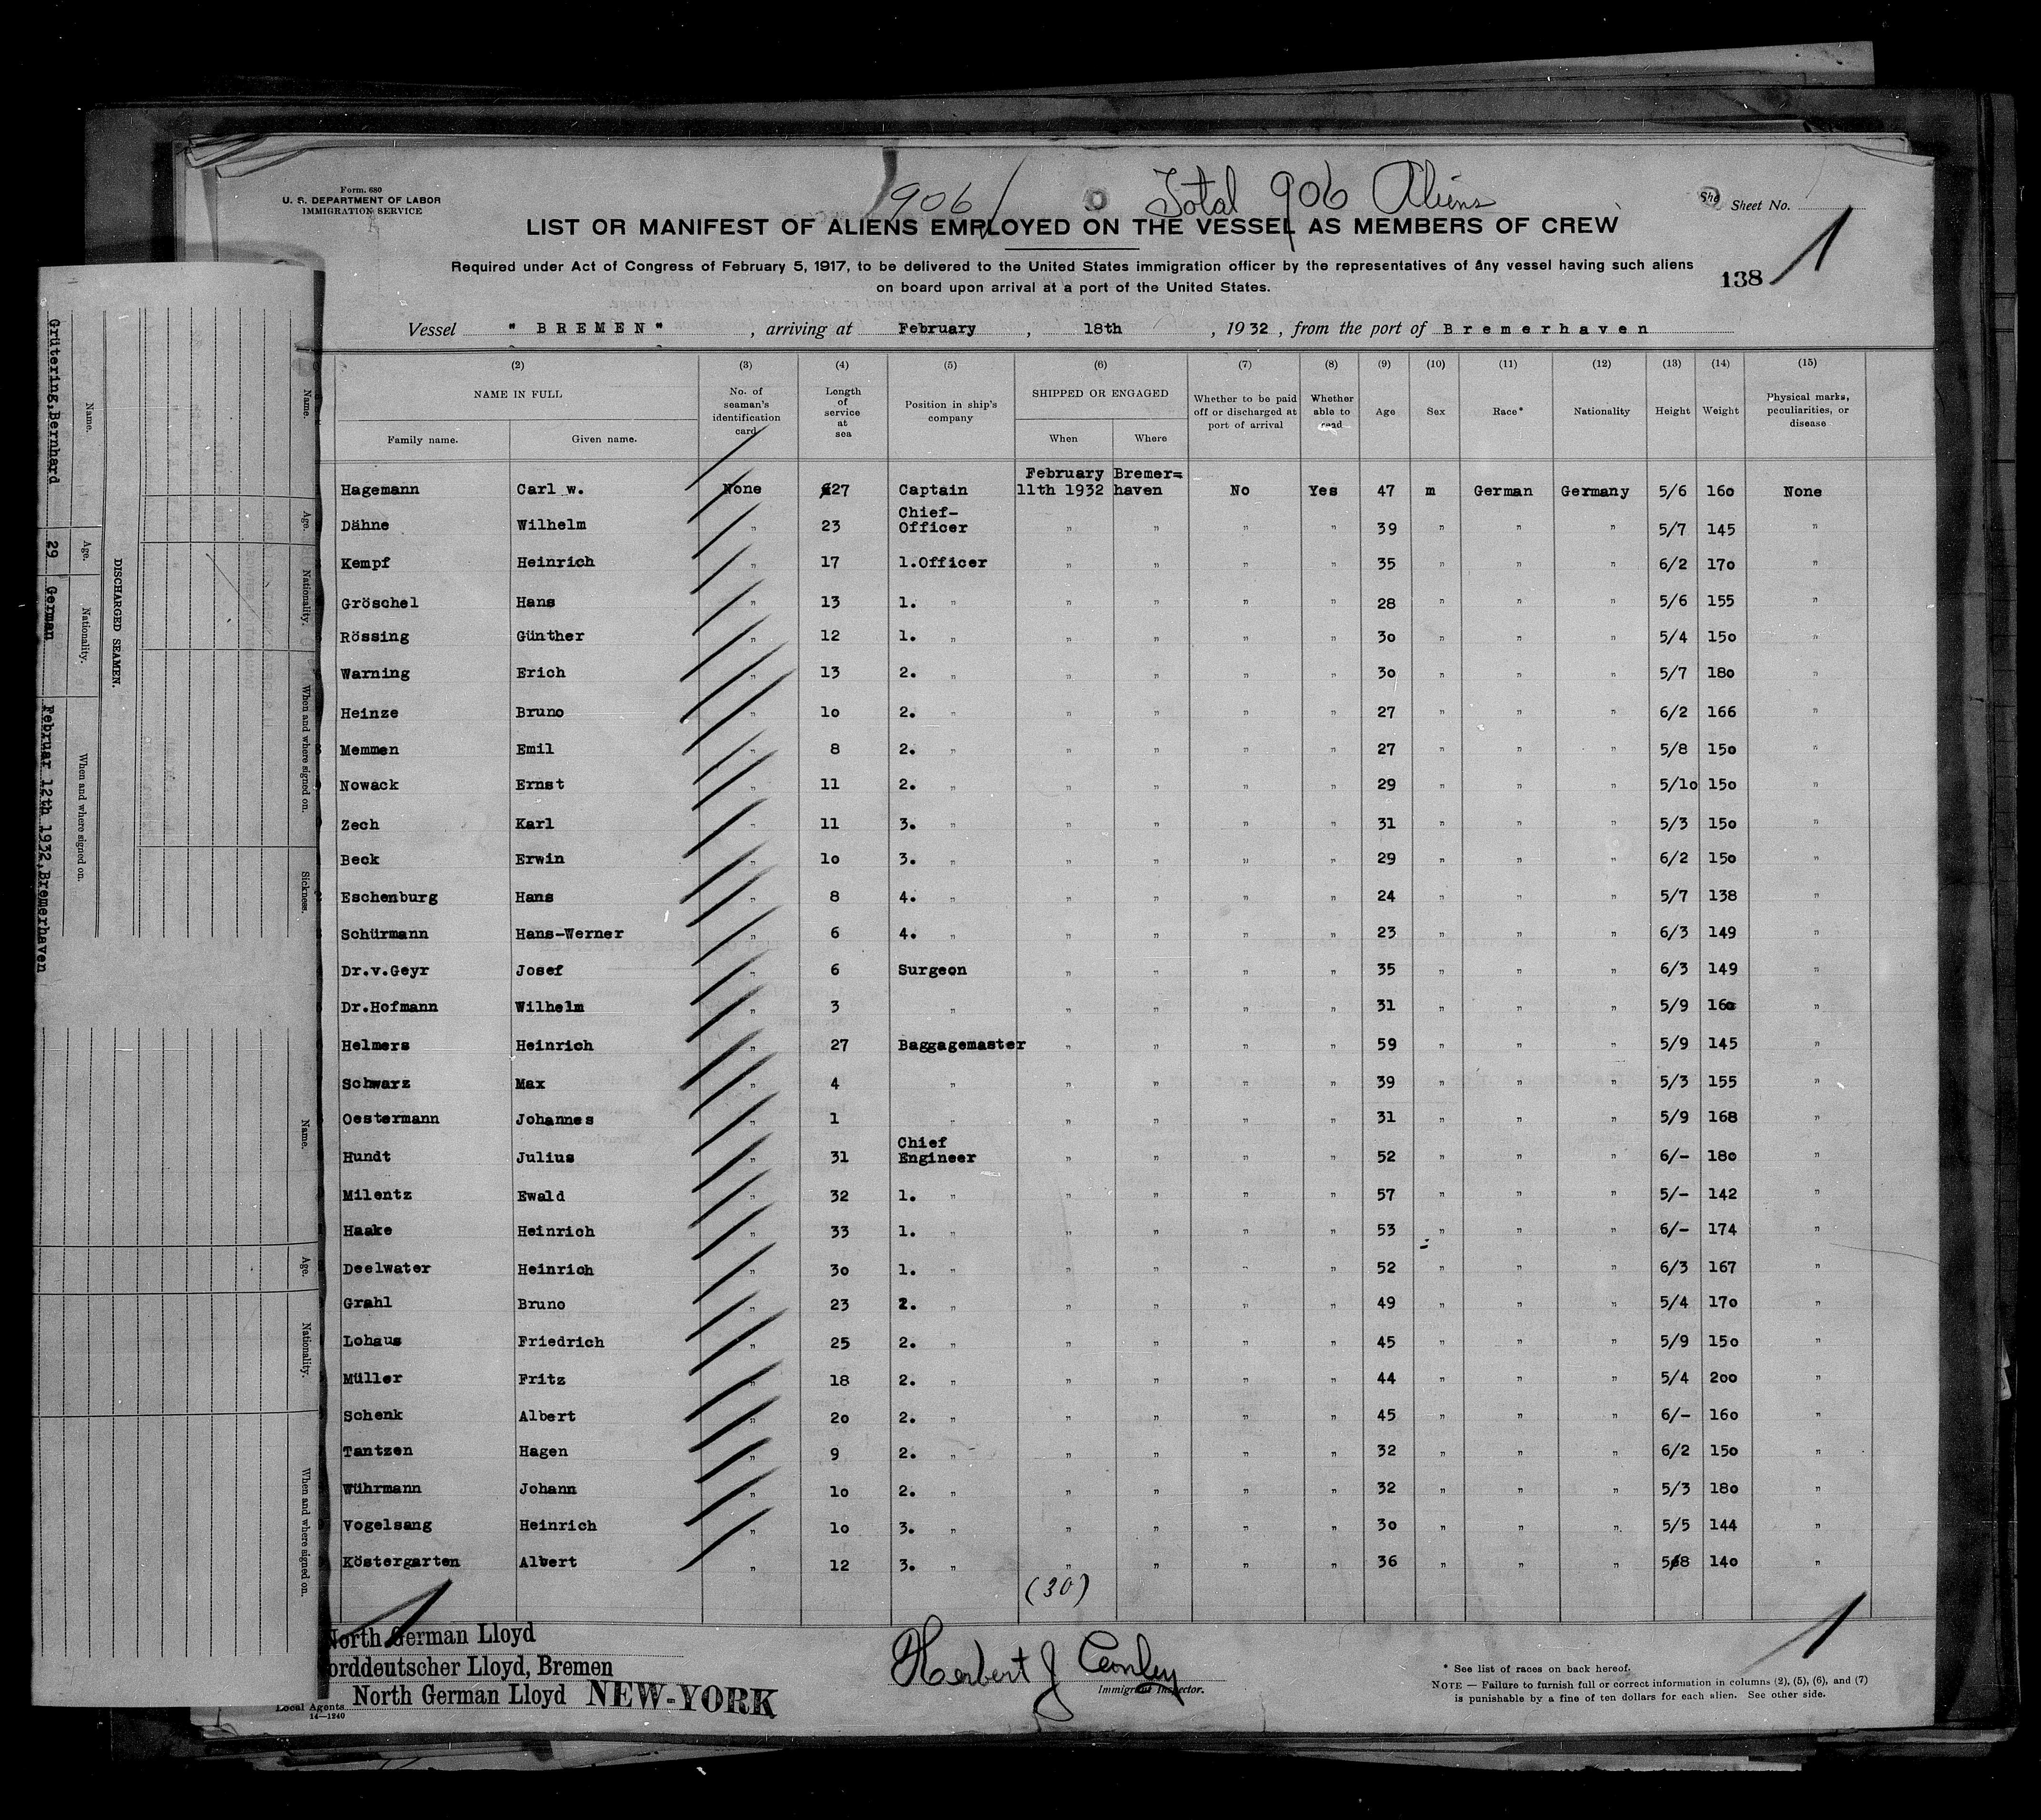 906
Total 906 Aliens
Form. 680
U. S. DEPARTMENT OF LABOR
IMMIGRATION SERVICE
Sheet No. 1
LIST OR MANIFEST OF ALIENS EMPLOYED ON THE VESSEL AS MEMBERS OF CREW
Required under Act of Congress of February 5, 1917, to be delivered to the United States immigration officer by the representatives of any vessel having such aliens
on board upon arrival at a port of the United States.
138
Vessel " BREMEN " , arriving at February , 18th , 1932 , from the port of Bremerhaven
(2) (3) (4) (5) (6) (7) (8) (9) (10) (11) (12) (13) (14) (15)
NAME IN FULL No. of seaman's identification card Length of service at sea Position in ship's company SHIPPED OR ENGAGED Whether to be paid off or discharged at port of arrival Whether able to read Age Sex Race* Nationality Height Weight Physical marks, peculiarities, or disease
Family name. Given name. When Where
Hagemann Carl w. None 27 Captain February 11th 1932 Bremer=haven No Yes 47 m German Germany 5/6 160 None
Dähne Wilhelm " 23 Chief-Officer " " " " 39 " " " 5/7 145 "
Kempf Heinrich " 17 1.Officer " " " " 35 " " " 6/2 170 "
Gröschel Hans " 13 1. " " " " " 28 " " " 5/6 155 "
Rössing Günther " 12 1. " " " " " 30 " " " 5/4 150 "
Warning Erich " 13 2. " " " " " 30 " " " 5/7 180 "
Heinze Bruno " 10 2. " " " " " 27 " " " 6/2 166 "
Memmen Emil " 8 2. " " " " " 27 " " " 5/8 150 "
Nowack Ernst " 11 2. " " " " " 29 " " " 5/10 150 "
Zech Karl " 11 3. " " " " " 31 " " " 5/3 150 "
Beck Erwin " 10 3. " " " " " 29 " " " 6/2 150 "
Eschenburg Hans " 8 4. " " " " " 24 " " " 5/7 138 "
Schürmann Hans-Werner " 6 4. " " " " " 23 " " " 6/3 149 "
Dr.v.Geyr Josef " 6 Surgeon " " " " 35 " " " 6/3 149 "
Dr.Hofmann Wilhelm " 3 " " " " " 31 " " " 5/9 160 "
Helmers Heinrich " 27 Baggagemaster " " " " 59 " " " 5/9 145 "
Schwarz Max " 4 " " " " " 39 " " " 5/3 155 "
Oestermann Johannes " 1 " " " " " 31 " " " 5/9 168 "
Hundt Julius " 31 Chief Engineer " " " " 52 " " " 6/- 180 "
Milentz Ewald " 32 1. " " " " " 57 " " " 5/- 142 "
Haake Heinrich " 33 1. " " " " " 53 " " " 6/- 174 "
Deelwater Heinrich " 30 1. " " " " " 52 " " " 6/3 167 "
Grahl Bruno " 23 2. " " " " " 49 " " " 5/4 170 "
Lohaus Friedrich " 25 2. " " " " " 45 " " " 5/9 150 "
Müller Fritz " 18 2. " " " " " 44 " " " 5/4 200 "
Schenk Albert " 20 2. " " " " " 45 " " " 6/- 160 "
Tantzen Hagen " 9 2. " " " " " 32 " " " 6/2 150 "
Wührmann Johann " 10 2. " " " " " 32 " " " 5/3 180 "
Vogelsang Heinrich " 10 3. " " " " " 30 " " " 5/5 144 "
Köstergarten Albert " 12 3. " " " " " 36 " " " 5/8 140 "
(30)
1
North German Lloyd
orddeutscher Lloyd, Bremen
Local Agents North German Lloyd NEW-YORK
14—1240
Herbert J Conley
Immigrant Inspector.
1
* See list of races on back hereof.
NOTE — Failure to furnish full or correct information in columns (2), (5), (6), and (7)
is punishable by a fine of ten dollars for each alien. See other side.
DISCHARGED SEAMEN.
Name. Age. Nationality. When and where signed on.
Grütering,Bernhard 29 German Februar 12th 1932,Bremerhaven
Name. Age. Nationality. When and where signed on. Sickness.
Name. Age. Nationality. When and where signed on.